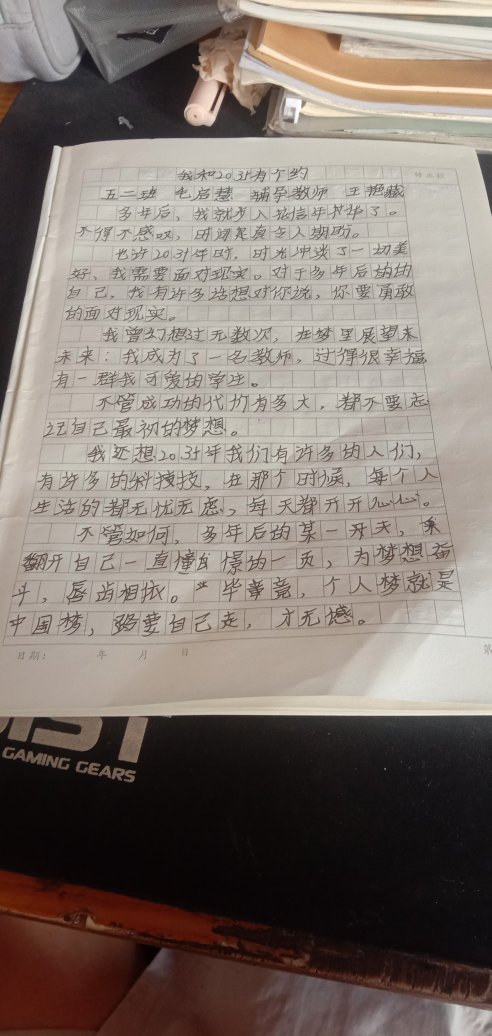 我和2035有个约
作业纸
五二班 毛启慧 辅导教师 王艳
多年后，我就步入信年华了。
不得不感叹，时间是真令人期盼。
也许2035年时，时光冲淡了一切美
好、我需要面对现实。对于多年后的的
自己，我有许多话想对你说，你要勇敢
的面对现实。
我曾幻想过无数次，在梦里展望未
未来：我成为了一名教师，过得很幸福
有一群我可爱的学生。
不管成功的代价有多大，都不要忘
记自己最初的梦想。
我还想2035年我们有许多的人们，
有许多的科技，在那个时候，每个人
生活的都无忧无虑，每天都开开心心。
不管如何，多年后的某一天，
翻开自己一直憧憬的一页，为梦想奋
斗，唇齿相依。毕竟，个人梦就是
中国梦，路要自己走，才无憾。
日期： 年 月 日
第
GAMING GEARS